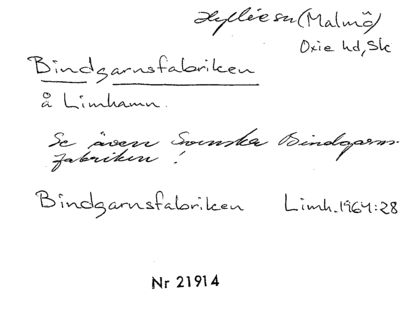 Hyllie sn (Malmö)
Oxie hd, Sk
Bindgarnsfabriken
å Limhamn.
Se även Svenska Bindgarns-
fabriken!
Bindgarnsfabriken Limh. 1964:28
Nr 21914